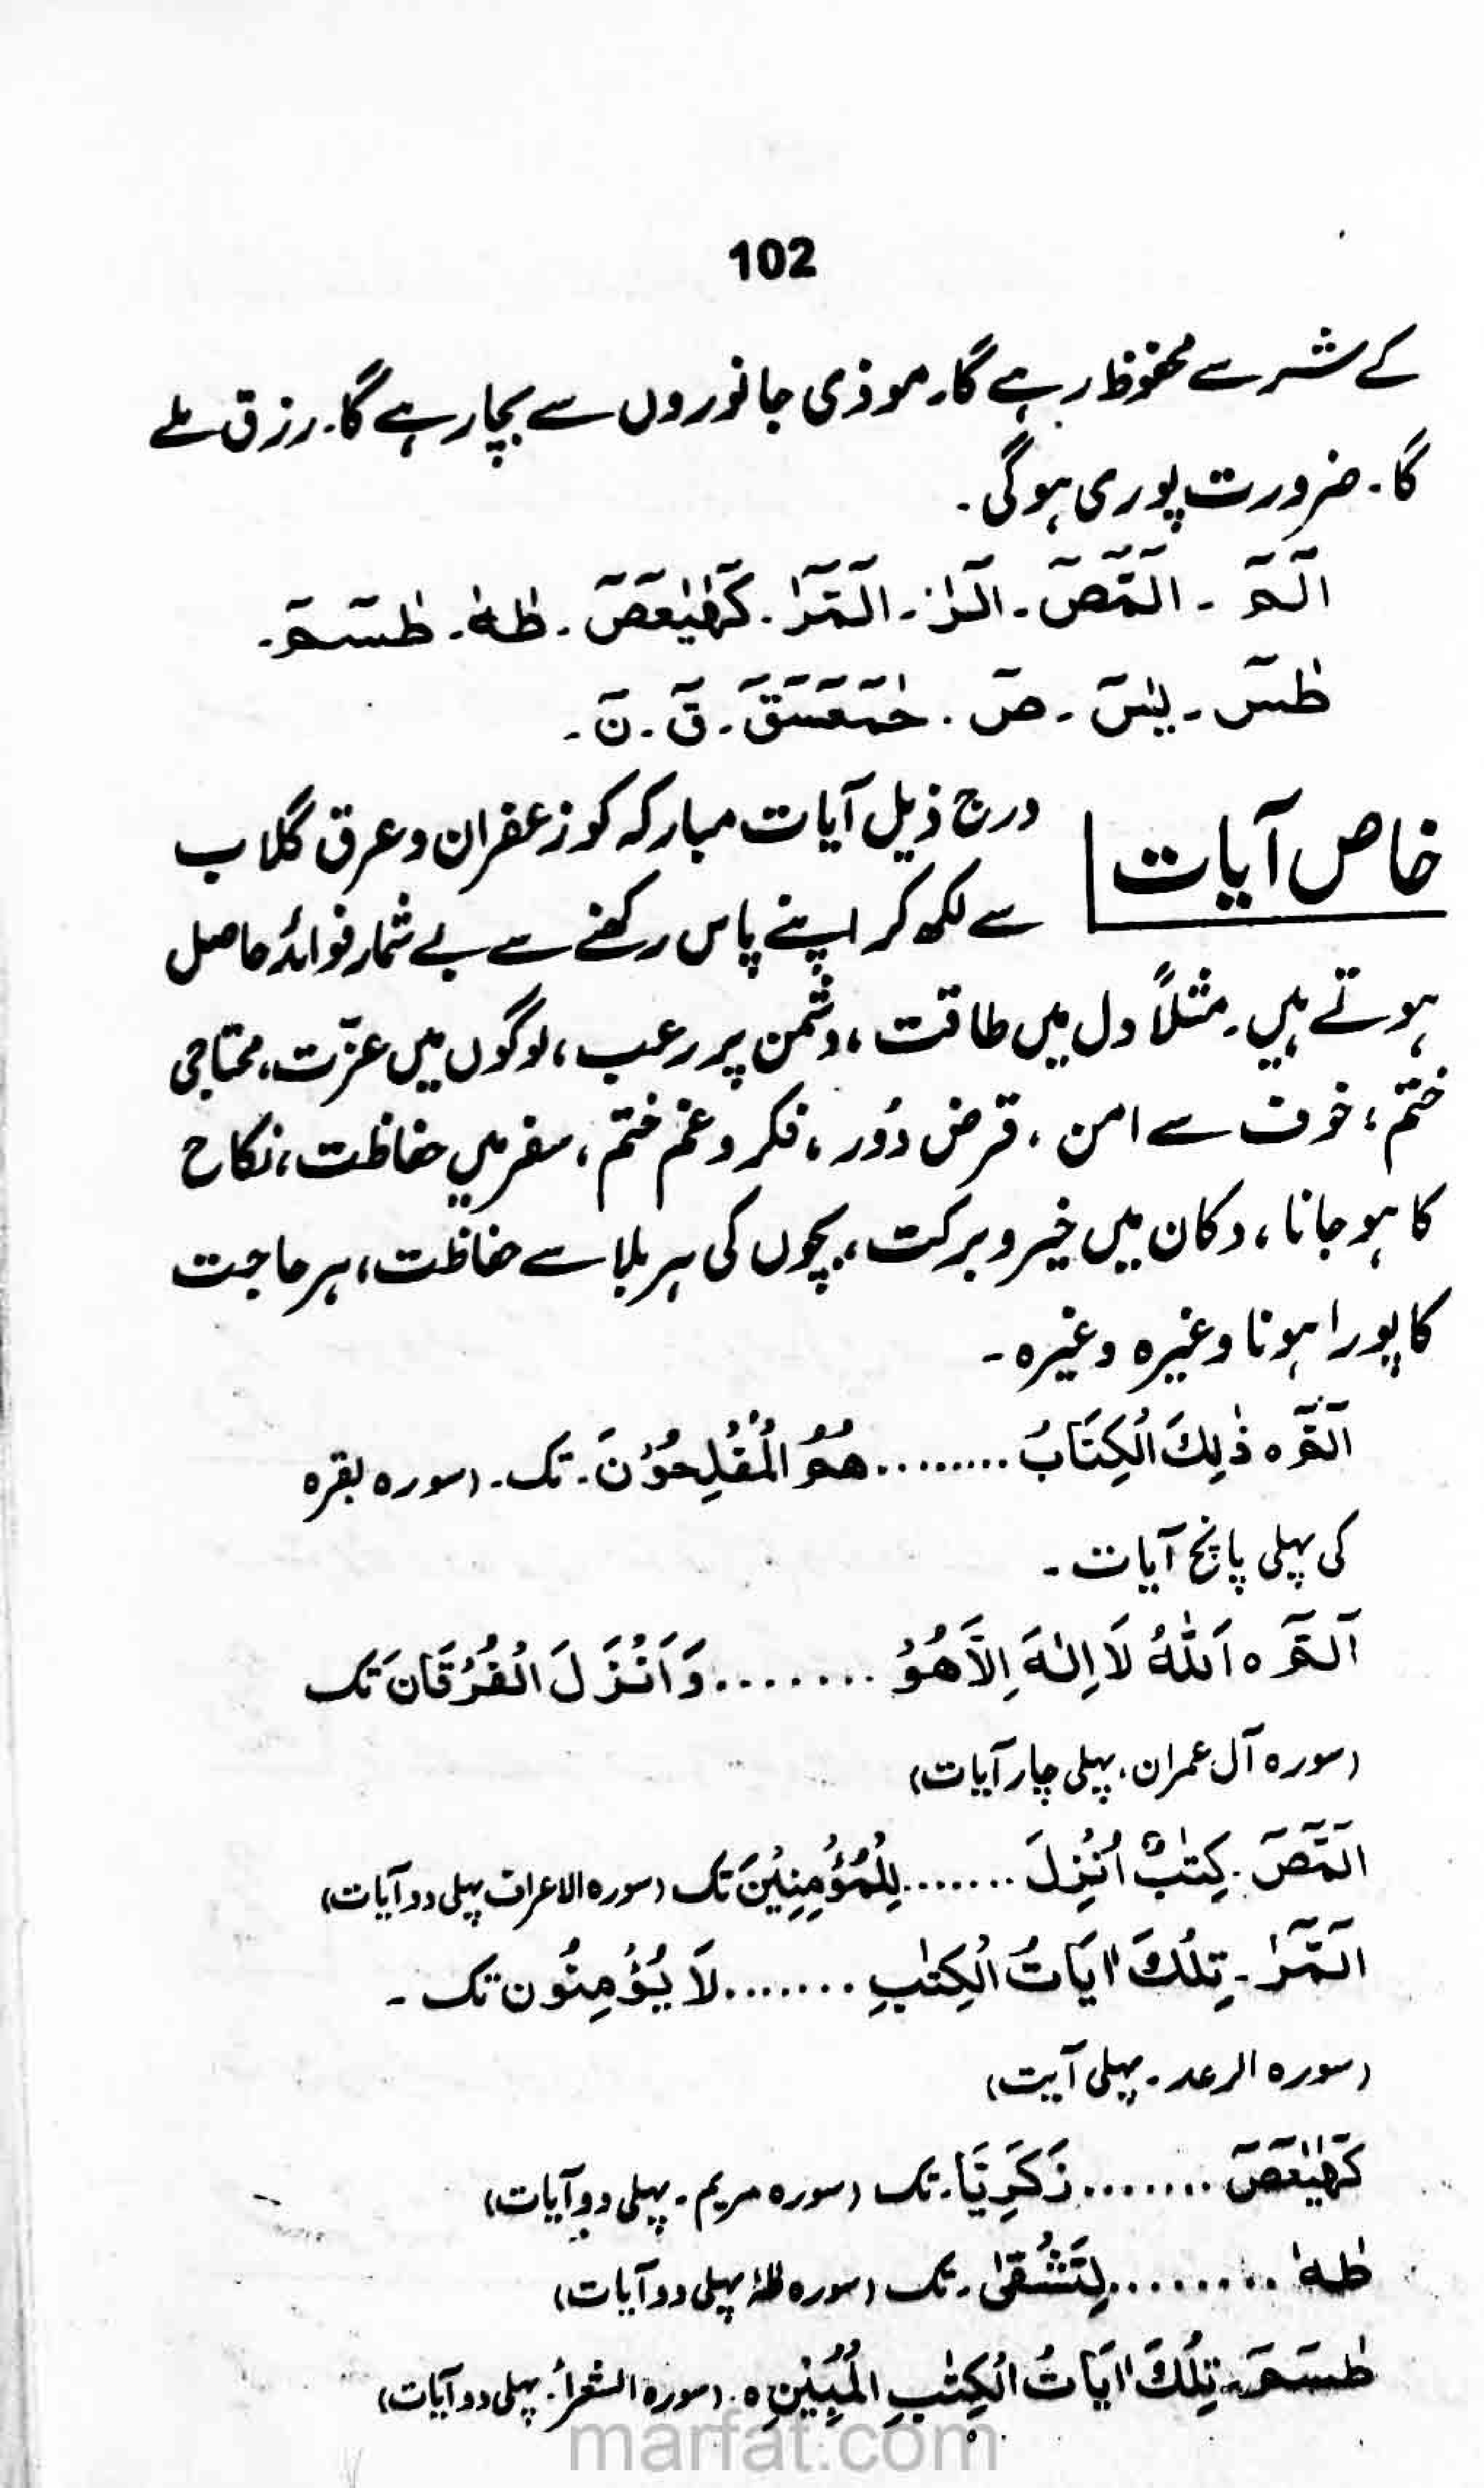 102
کے شر سے محفوظ رہے گا۔ موذی جانوروں سے بچا رہے گا۔ رزق ملے
گا۔ ضرورت پوری ہوگی۔
الٓمٓ ۔ الٓمّٓصٓ ۔ الٓرٰ ۔ الٓمّٓرٰ ۔ کٓھٰیٰعٓصٓ ۔ طٰہٰ ۔ طٰسٓمٓ ۔
طٰسٓ ۔ یٰسٓ ۔ صٓ ۔ حٰمٓعٓسٓقٓ ۔ قٓ ۔ نٓ ۔
خاص آیات
درج ذیل آیات مبارکہ کو زعفران و عرق گلاب
سے لکھ کر اپنے پاس رکھنے سے بے شمار فوائد حاصل
ہوتے ہیں۔ مثلاً دل میں طاقت، دشمن پر رعب، لوگوں میں عزّت، محتاجی
ختم، خوف سے امن، قرض دُور، فکر و غم ختم، سفر میں حفاظت، نکاح
کا ہو جانا، دکان میں خیر و برکت، بچوں کی ہر بلا سے حفاظت، ہر حاجت
کا پورا ہونا وغیرہ وغیرہ ۔
الٓمّٓ ہ ذٰلِكَ الْكِتَابُ ......... هُمُ الْمُفْلِحُوْنَ ۔ تک ۔ (سورہ بقرہ
کی پہلی پانچ آیات ۔
الٓمّٓ ہ اَللّٰهُ لَا اِلٰهَ اِلَّا هُوَ ....... وَاَنْزَلَ الْفُرْقَانَ تک
(سورہ آل عمران۔ پہلی چار آیات)
الٓمّٓصٓ ۔ كِتٰبٌ اُنْزِلَ ....... لِلْمُؤْمِنِيْنَ تک (سورہ الاعراف پہلی دو آیات)
الٓمّٓرٰ ۔ تِلْكَ اٰيَاتُ الْكِتٰبِ ....... لَا يُؤْمِنُون تک ۔
(سورہ الرعد ۔ پہلی آیت)
کٓھٰیٰعٓصٓ ....... زَكَرِيَّا ۔ تک (سورہ مریم ۔ پہلی دو آیات)
طٰهٰ ......... لِتَشْقٰى ۔ تک (سورہ طٰہٰ پہلی دو آیات)
طٰسٓمٓ ۔ تِلْكَ اٰيَاتُ الْكِتٰبِ الْمُبِيْنِ ہ ۔ (سورہ الشعرأ ۔ پہلی دو آیات)
marfat.com